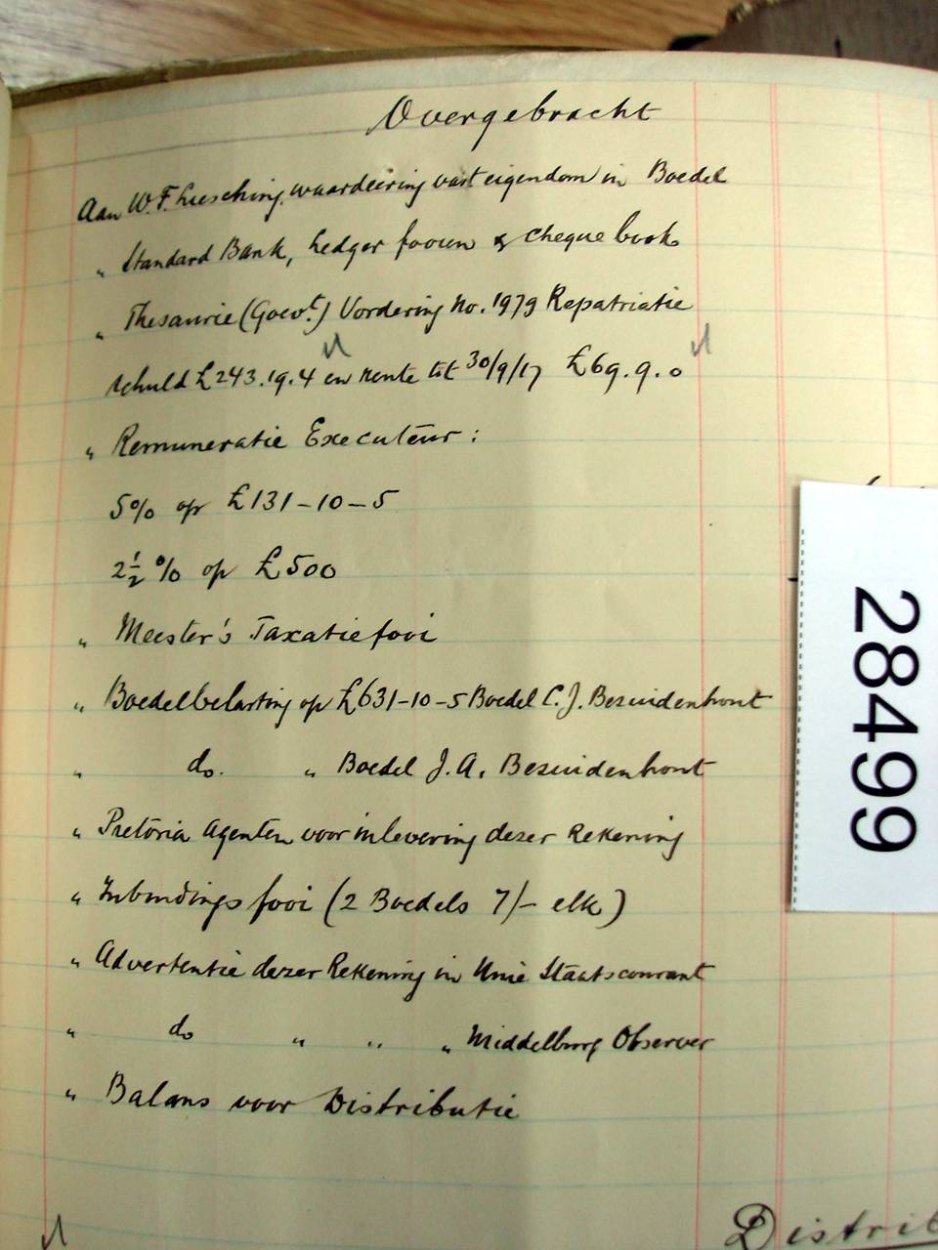 Overgebracht
Aan W. F. Liesching, waardeering vast eigendom in Boedel
" Standard Bank, Ledger fooien & cheque book
" Thesaurie (Goevt.) Vordering No. 1979 Repatriatie
schuld £243.19.4 en rente tot 30/9/17 £69.9.0
" Remuneratie Executeur :
5% op £131-10-5
2½% op £500
" Meester's Taxatie fooi
" Boedelbelasting op £631-10-5 Boedel C. J. Bezuidenhout
" do. " Boedel J. A. Bezuidenhout
" Pretoria Agenten voor inlevering dezer Rekening
" Inbindings fooi (2 Boedels 7/- elk)
" Advertentie dezer Rekening in Unie Staatscourant
" do " " " Middelburg Observer
" Balans voor Distributie
Distrib
28499